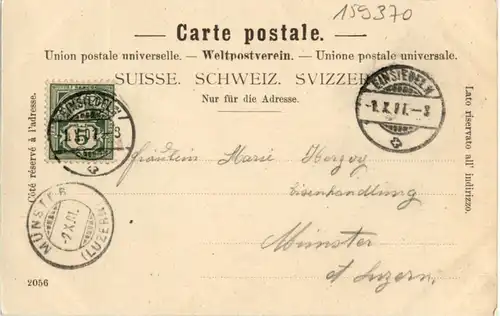 159370
Carte postale.
Union postale universelle. - Weltpostverein. - Unione postale universale.
SUISSE. SCHWEIZ. SVIZZERA
Nur für die Adresse.
Côté réservé à l'adresse.
Lato riservato all' indirizzo.
EINSIEDELN
5
EINSIEDELN
-1.X.01.-3
Fräulein Marie Herzog
Eisenhandlung
Münster
Ct Luzern.
MÜNSTER
-2.X.01.
(LUZERN)
2056